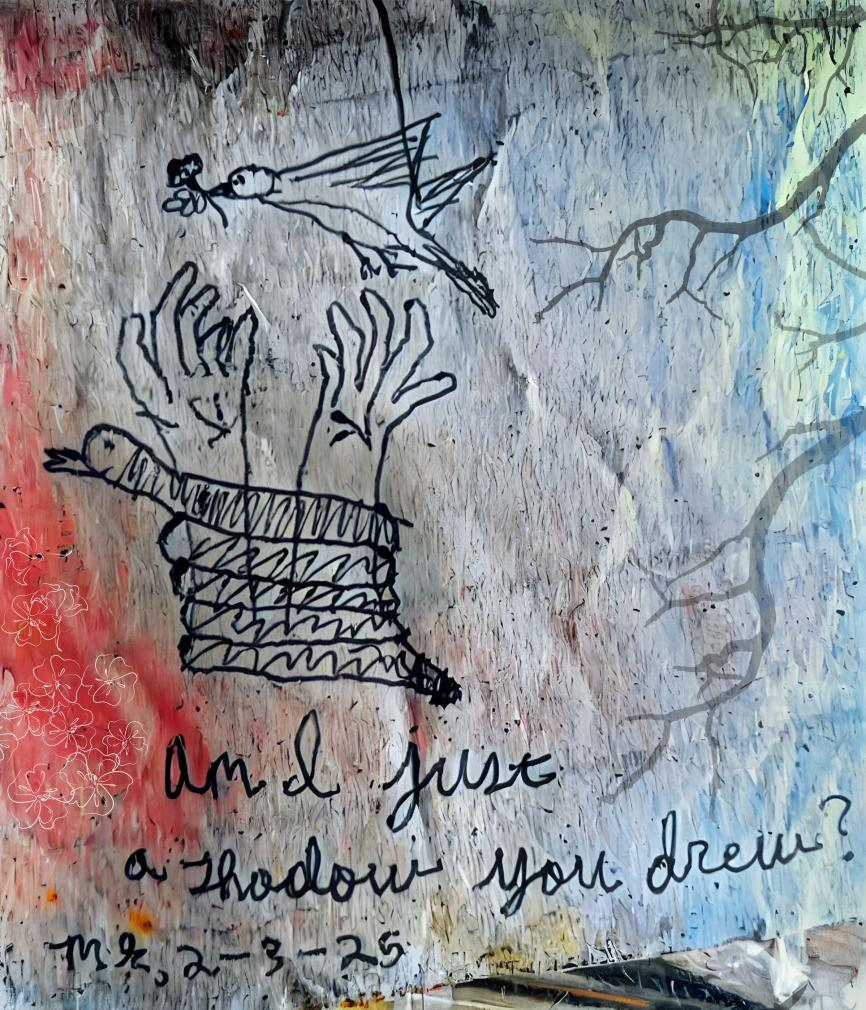 am I just
a shadow you drew?
MR, 2-3-25